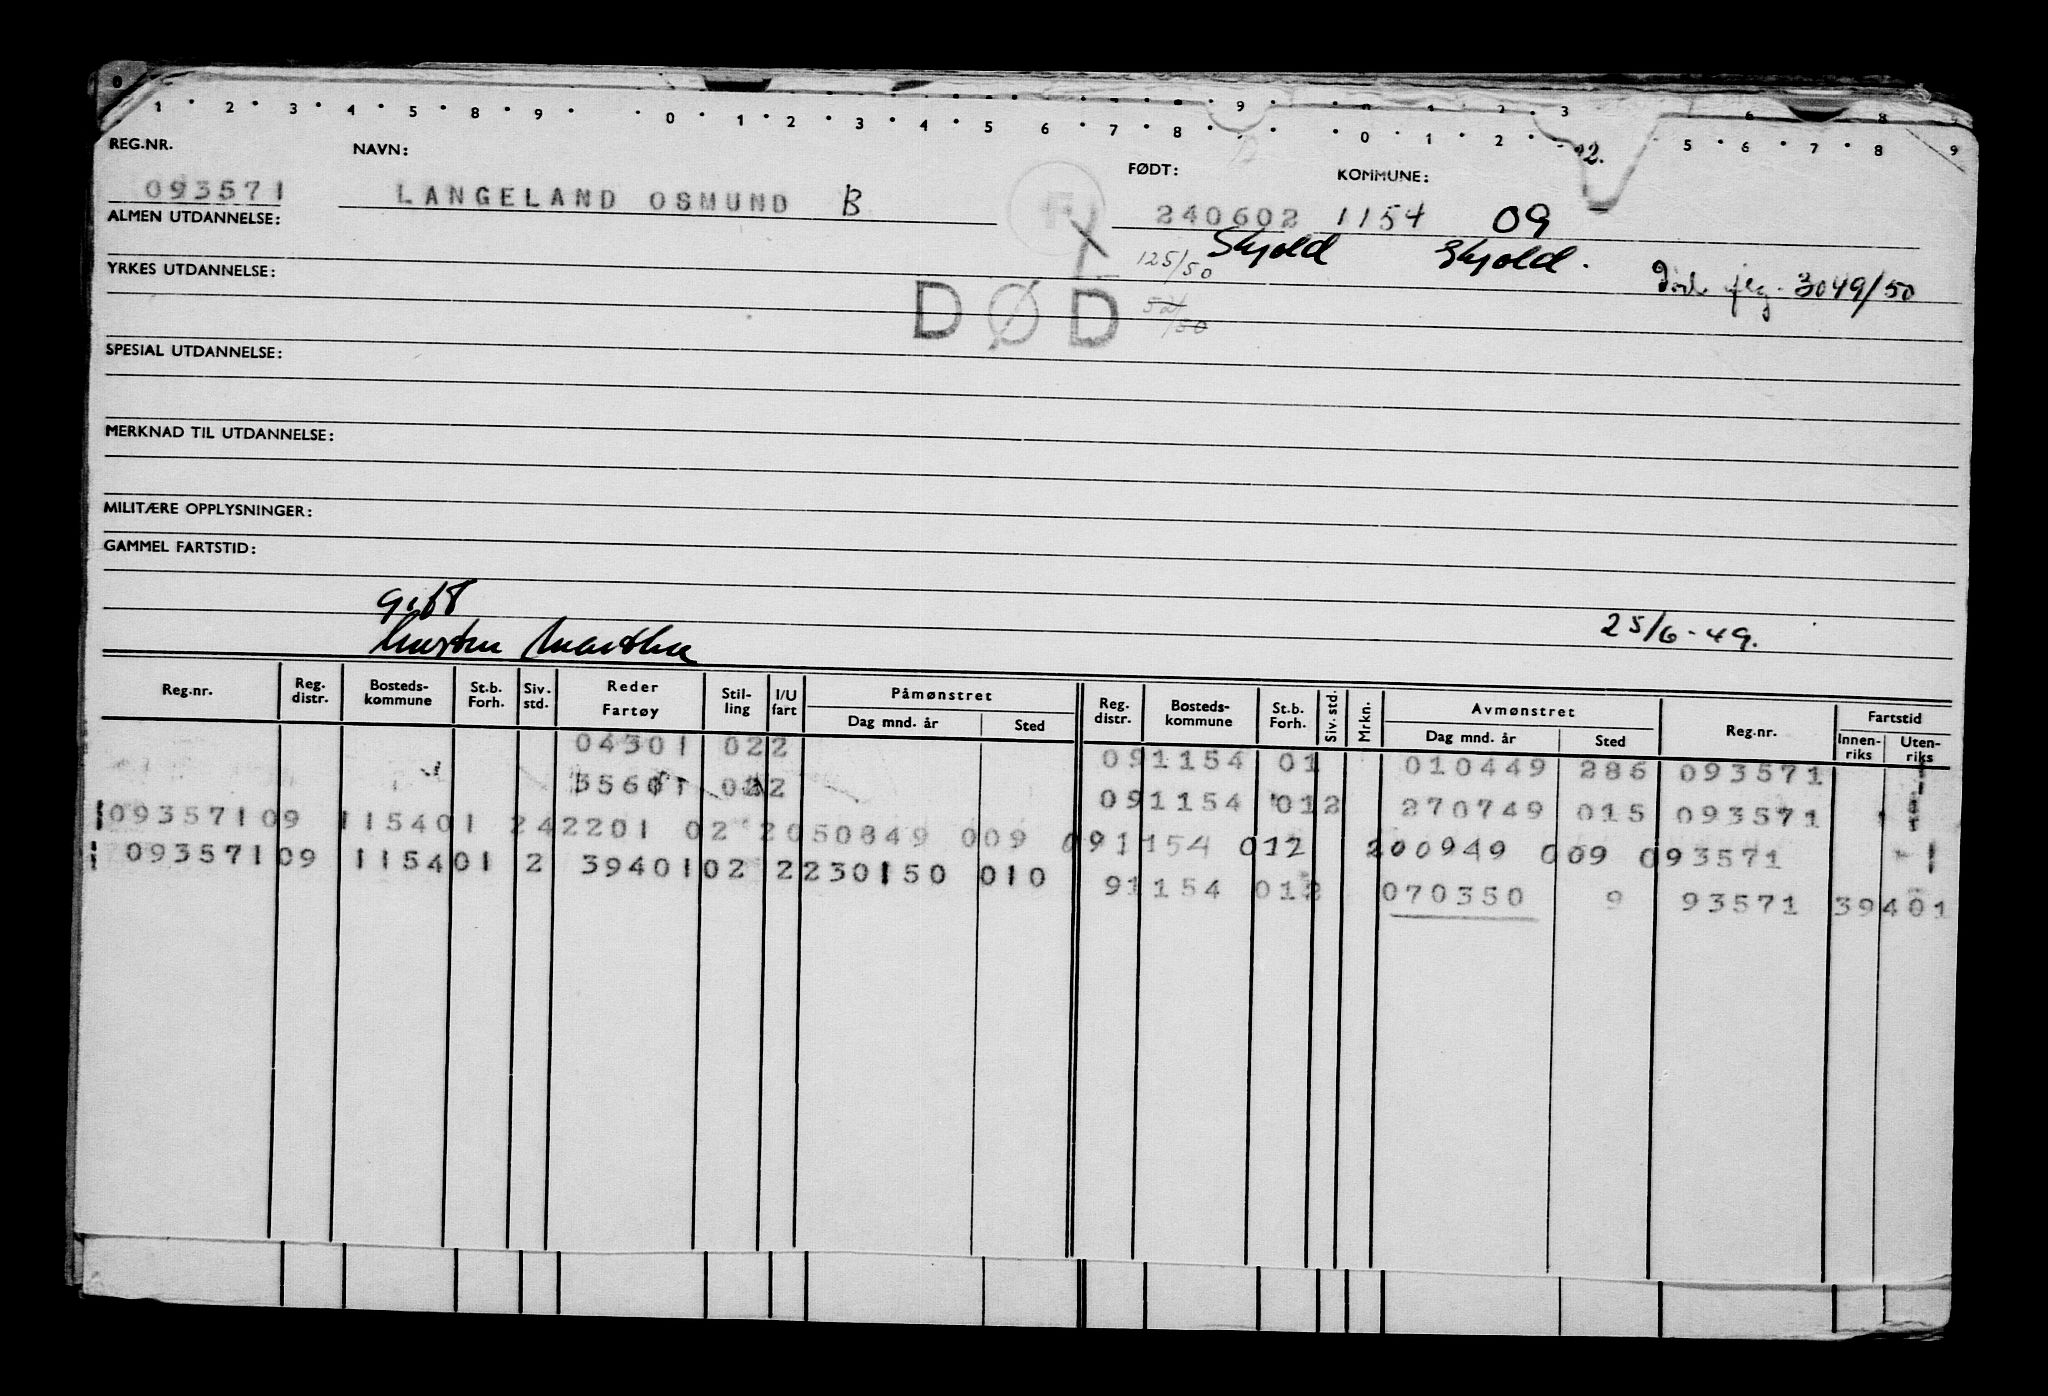 0
1 2 3 4 5 8 9 0 1 2 3 4 5 6 7 8 9 0 1 2 3 5 6 7 8 9
REG.NR. NAVN: FØDT: KOMMUNE:
093571 LANGELAND OSMUND B 240602 1154 09
ALMEN UTDANNELSE: Skjold Skjold.
YRKES UTDANNELSE: 125/50 3049/50
DØD 52/50
SPESIAL UTDANNELSE:
MERKNAD TIL UTDANNELSE:
MILITÆRE OPPLYSNINGER:
GAMMEL FARTSTID:
gift
25/6-49.
Reg.nr. Reg. distr. Bosteds-kommune St.b. Forh. Siv. std. Reder Fartøy Stil-ling I/U fart Påmønstret Dag mnd. år Sted Reg. distr. Bosteds-kommune St.b. Forh. Siv. std. Mrkn. Avmønstret Dag mnd. år Sted Reg.nr. Fartstid Innen-riks Uten-riks
04301 022 091154 01 010449 286 093571
35601 022 091154 012 270749 015 093571
093571 09 1154 01 2 42201 02 2 050849 009 091154 012 200949 009 093571
093571 09 1154 01 2 39401 02 2 230150 010 91154 012 070350 9 93571 39401